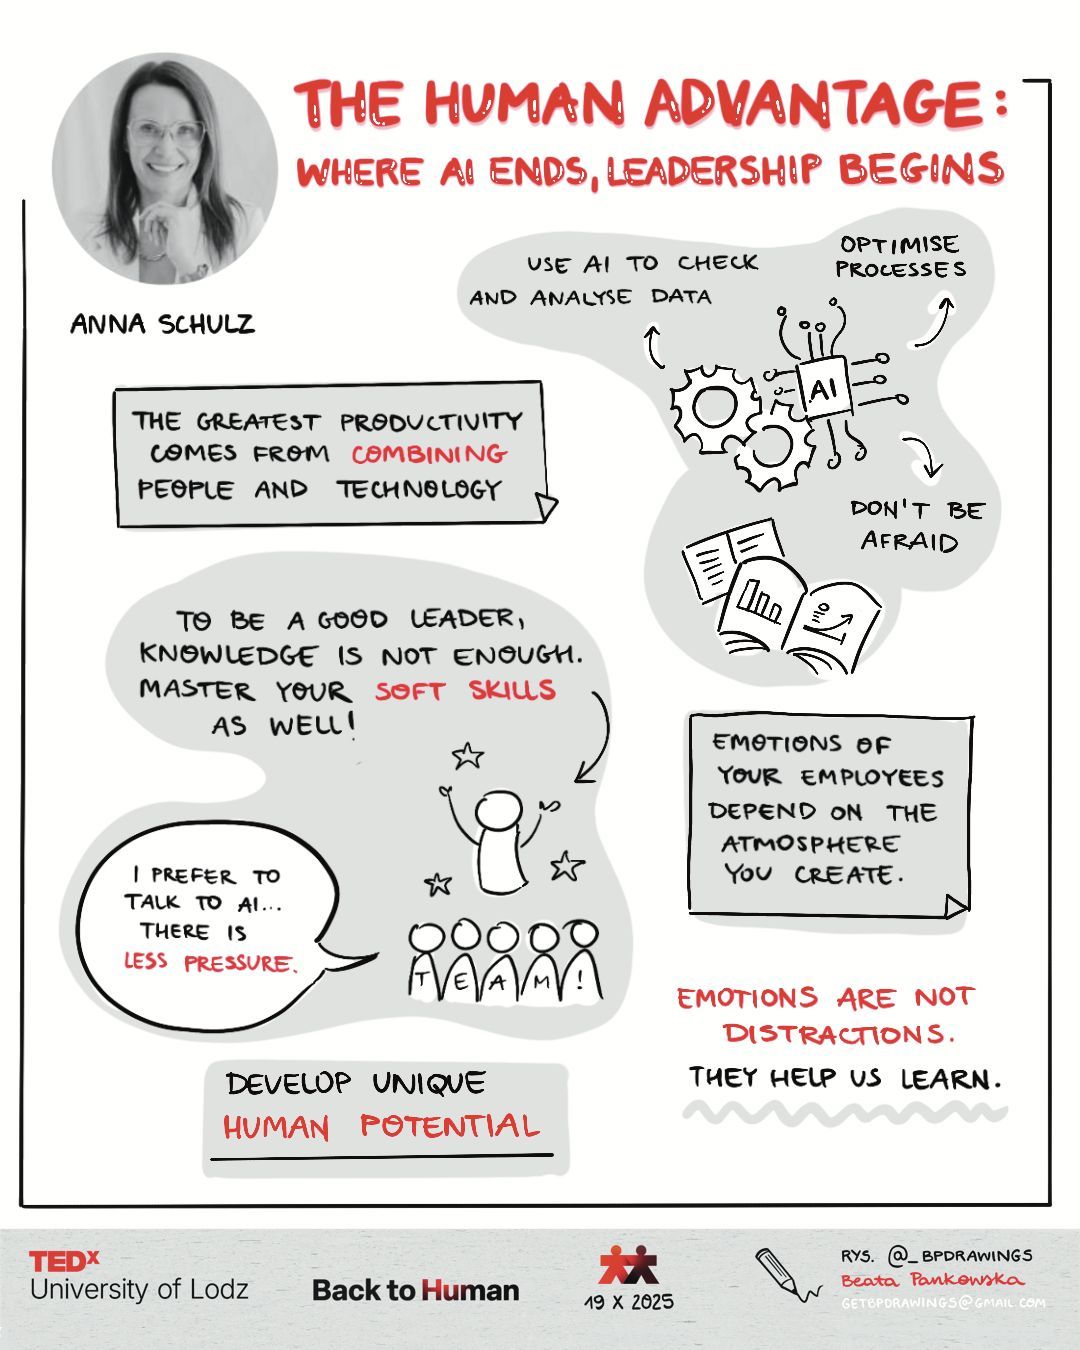 THE HUMAN ADVANTAGE:
WHERE AI ENDS, LEADERSHIP BEGINS
ANNA SCHULZ
USE AI TO CHECK
AND ANALYSE DATA
OPTIMISE
PROCESSES
AI
DON'T BE
AFRAID
THE GREATEST PRODUCTIVITY
COMES FROM COMBINING
PEOPLE AND TECHNOLOGY
TO BE A GOOD LEADER,
KNOWLEDGE IS NOT ENOUGH.
MASTER YOUR SOFT SKILLS
AS WELL!
I PREFER TO
TALK TO AI...
THERE IS
LESS PRESSURE.
TEAM!
EMOTIONS OF
YOUR EMPLOYEES
DEPEND ON THE
ATMOSPHERE
YOU CREATE.
EMOTIONS ARE NOT
DISTRACTIONS.
THEY HELP US LEARN.
DEVELOP UNIQUE
HUMAN POTENTIAL
TEDx
University of Lodz
Back to Human
19 X 2025
RYS. @_BPDRAWINGS
Beata Pankowska
GETBPDRAWINGS@GMAIL.COM